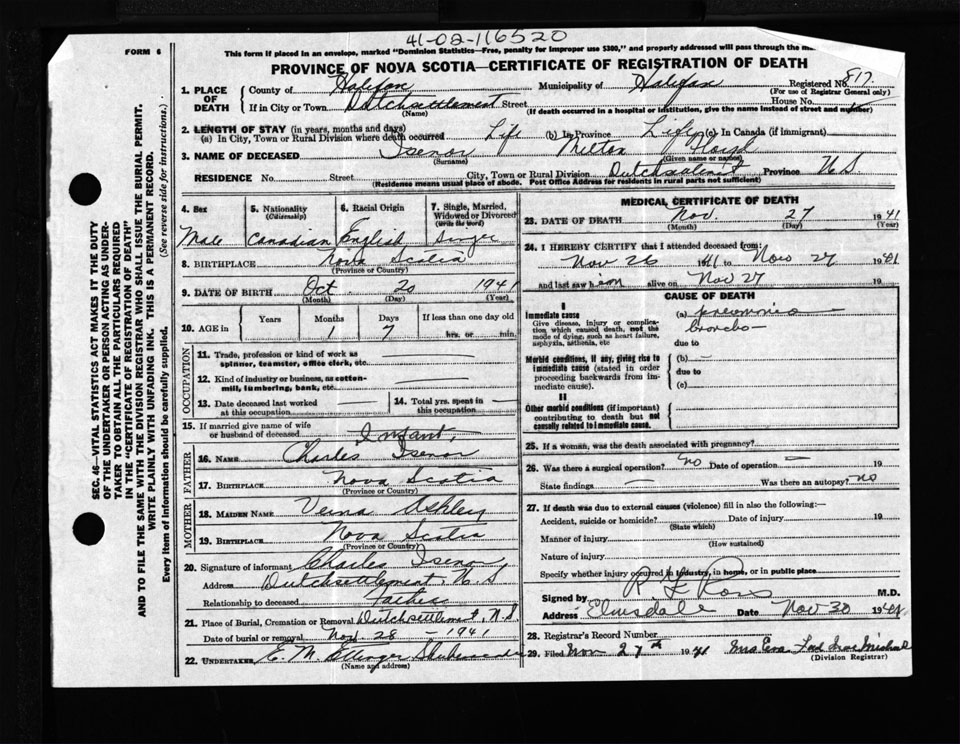 41-02-116520
FORM 6
This form if placed in an envelope, marked "Dominion Statistics—Free, penalty for improper use $300," and properly addressed will pass through the
PROVINCE OF NOVA SCOTIA—CERTIFICATE OF REGISTRATION OF DEATH
1. PLACE OF DEATH
County of Halifax Municipality of Halifax Registered No. 817.
(For use of Registrar General only)
If in City or Town Dutchsettlement Street House No.
(Name) (If death occurred in a hospital or institution, give the name instead of street and number)
2. LENGTH OF STAY (in years, months and days)
(a) In City, Town or Rural Division where death occurred Life (b) in Province Life (c) In Canada (if immigrant)
3. NAME OF DECEASED Isenor Milton Floyd
(Surname) (Given name or names)
RESIDENCE No. Street City, Town or Rural Division Dutchsettlement Province N.S
(Residence means usual place of abode. Post Office Address for residents in rural parts not sufficient)
4. Sex
Male
5. Nationality (Citizenship)
Canadian
6. Racial Origin
English
7. Single, Married, Widowed or Divorced (Write the word)
8. BIRTHPLACE Nova Scotia
(Province or Country)
9. DATE OF BIRTH Oct. 20 1941
(Month) (Day) (Year)
10. AGE in
Years Months Days If less than one day old
1 7 hrs. or min.
OCCUPATION
11. Trade, profession or kind of work as spinner, teamster, office clerk, etc.
12. Kind of industry or business, as cotton-mill, lumbering, bank, etc.
13. Date deceased last worked at this occupation
14. Total yrs. spent in this occupation
15. If married give name of wife or husband of deceased Infant.
FATHER
16. NAME Charles Isenor
17. BIRTHPLACE Nova Scotia
(Province or Country)
MOTHER
18. MAIDEN NAME Verna Ashley
19. BIRTHPLACE Nova Scotia
(Province or Country)
20. Signature of informant Charles Isenor
Address Dutchsettlement, N S
Relationship to deceased Father
21. Place of Burial, Cremation or Removal Dutchsettlement, N.S
Date of burial or removal Nov. 28 - 1941
22. UNDERTAKER E. M. Ettinger Shubenacadie
(Name and address)
MEDICAL CERTIFICATE OF DEATH
23. DATE OF DEATH Nov. 27 1941
(Month) (Day) (Year)
24. I HEREBY CERTIFY that I attended deceased from:
Nov 26 1941 to Nov 27 1941
and last saw h em alive on Nov 27 19
CAUSE OF DEATH
I
Immediate cause
Give disease, injury or complication which caused death, not the mode of dying, such as heart failure, asphyxia, asthenia, etc
(a) pneumonia
broncho-
due to
Morbid conditions, if any, giving rise to immediate cause (stated in order proceeding backwards from immediate cause).
(b) -
due to
(c)
II
Other morbid conditions (if important) contributing to death but not causally related to immediate cause.
25. If a woman, was the death associated with pregnancy?
26. Was there a surgical operation? no Date of operation - 19
State findings - Was there an autopsy? no
27. If death was due to external causes (violence) fill in also the following:—
Accident, suicide or homicide? Date of injury 19
(State which)
Manner of injury
(How sustained)
Nature of injury
Specify whether injury occurred in industry, in home, or in public place
Signed by R L Ross M.D.
Address Elmsdale Date Nov 30 1941
28. Registrar's Record Number
29. Filed Nov 27th 1941 Mrs Eva
(Division Registrar)
SEC. 46—VITAL STATISTICS ACT MAKES IT THE DUTY
OF THE UNDERTAKER OR PERSON ACTING AS UNDER-
TAKER TO OBTAIN ALL THE PARTICULARS REQUIRED
IN THE "CERTIFICATE OF REGISTRATION OF DEATH"
AND TO FILE THE SAME WITH THE DIVISION REGISTRAR WHO SHALL ISSUE THE BURIAL PERMIT.
WRITE PLAINLY WITH UNFADING INK. THIS IS A PERMANENT RECORD.
Every item of information should be carefully supplied. (See reverse side for instructions.)